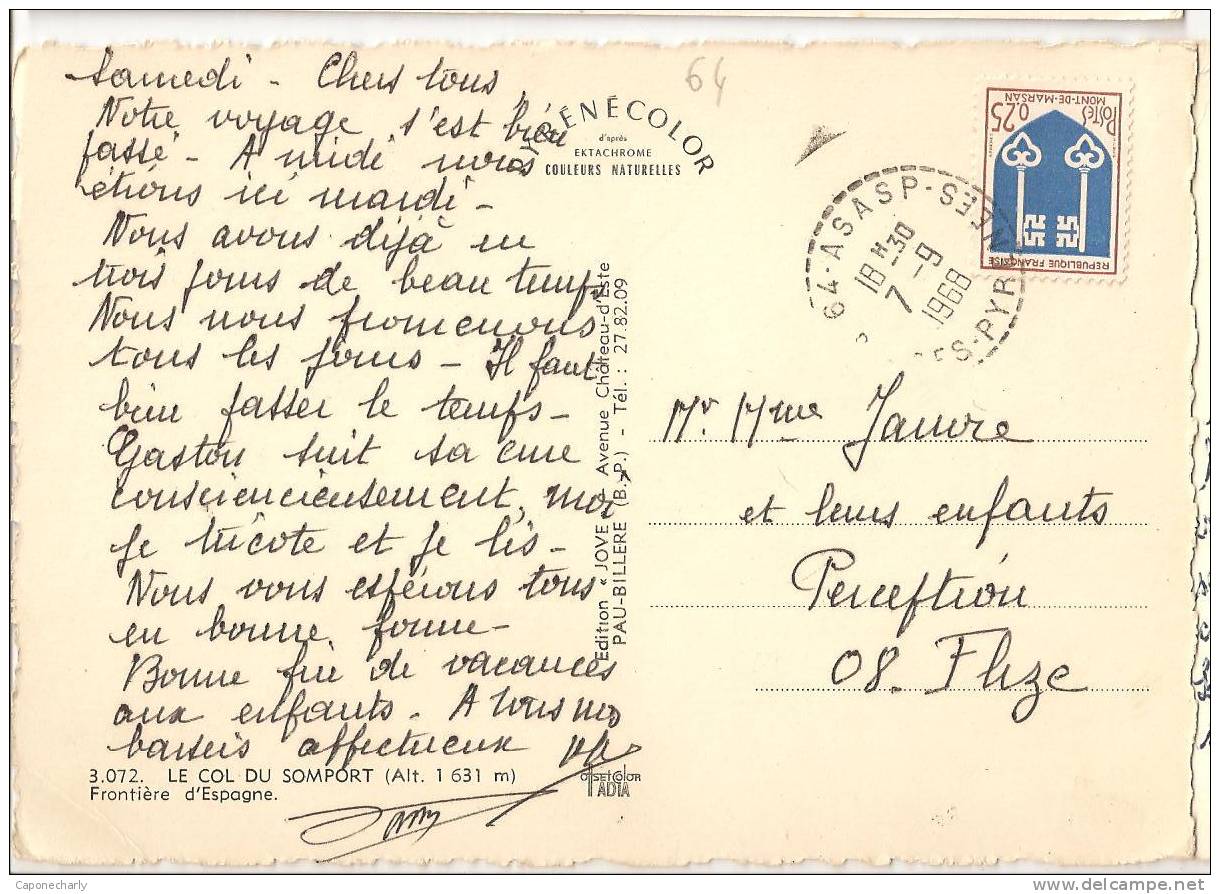 Samedi - Chers tous,
Notre voyage s'est bien
passé - A midi nous
étions ici mardi -
Nous avons déjà eu
trois jours de beau temps
Nous nous promenons
tous les jours - Il faut
bien passer le temps -
Gaston suit sa cure
consciencieusement, moi
je tricote et je lis -
Nous vous espérons tous
en bonne forme -
Bonne fin de vacances
aux enfants - A tous nos
baisers affectueux
3.072. LE COL DU SOMPORT (Alt. 1 631 m)
Frontière d'Espagne.
PYRÉNÉCOLOR
d'après
EKTACHROME
COULEURS NATURELLES
Edition « JOVE » Avenue Château-d'Este
PAU-BILLERE (B.-P.) - Tél. : 27.82.09
OFFSETCOLOR
IADIA
64
64-ASASP-
18 H 30
7-9
1968
BSES-PYRÉNÉES
REPUBLIQUE FRANÇAISE
0,25
Postes
MONT-DE-MARSAN
Mr. Mme Janvre
et leurs enfants
Perception
08. Flize
Caponecharly
www.delcampe.net